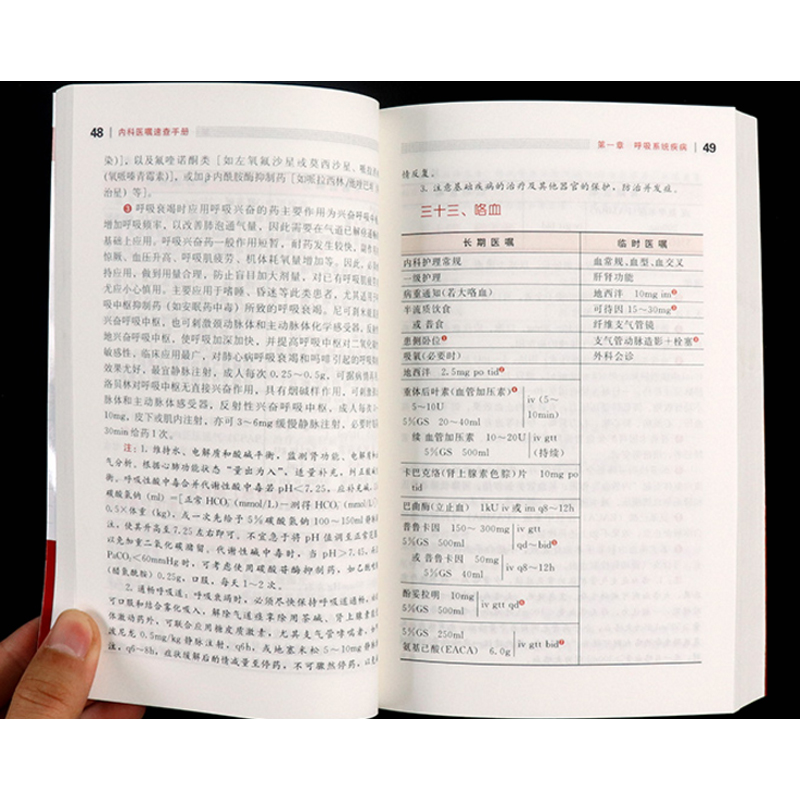 48 内科医嘱速查手册
染)]，以及氟喹诺酮类［如左氧氟沙星或莫西沙星、哌拉
(氧哌嗪青霉素)]，或加β内酰胺酶抑制药［如哌拉西林/他唑巴
治星）等]。
❸ 呼吸衰竭时应用呼吸兴奋的药主要作用为兴奋呼吸中枢
增加呼吸频率，以改善肺泡通气量，因此需要在气道已解痉通畅
基础上应用。呼吸兴奋药一般作用短暂，耐药发生较快，副作用
惊厥、血压升高、呼吸肌疲劳、机体耗氧量增加等。因此，必
持应用，做到用量合理，防止盲目加大剂量，对已有呼吸肌疲
无应小心慎用。主要应用于嗜睡、昏迷等此类患者，尤其适用
吸中枢抑制药（如安眠药中毒）所致的呼吸衰竭。尼可刹米
兴奋呼吸中枢，也可刺激颈动脉体和主动脉体化学感受器，反射
地兴奋呼吸中枢，使呼吸加深加快，并提高呼吸中枢对二氧化
敏感性。临床应用最广，对肺心病呼吸衰竭和吗啡引起的呼吸
效果尤好，最宜静脉注射，成人每次0.25～0.5g，可据病情
洛贝林对呼吸中枢无直接兴奋作用，具有烟碱样作用，可刺激
脉体和主动脉体感受器，反射性兴奋呼吸中枢，成人每次
10mg，皮下或肌内注射，亦可3～6mg缓慢静脉注射，必要时
30min给药1次。
注：1. 维持水、电解质和酸碱平衡，监测肾功能、电解质和
气分析。根据心肺功能状态“量出为入”，适量补充，纠正
衡。呼吸性酸中毒合并代谢性酸中毒若pH<7.25，应补充
碳酸氢钠（ml）=[正常HCO₃⁻(mmol/L)－测得HCO₃⁻(mmol/L)]
0.5×体重（kg），或一次先给予5%碳酸氢钠100～150ml静
注，使其升高至7.25左右即可，不宜急于将pH值调至正常
以免加重二氧化碳潴留。代谢性碱中毒时，当pH>7.45，
PaCO₂<60mmHg时，可考虑使用碳酸苷酶抑制药，如乙酰唑
（醋氮酰胺）0.25g，口服，每天1～2次。
2. 通畅呼吸道：呼吸衰竭时，必须尽快保持呼吸道通畅，
可口服和结合雾化吸入，解除气道痉挛除用茶碱、肾上腺素
体激动药外，可联合应用糖皮质激素，尤其支气管哮喘者，如
泼尼龙0.5mg/kg静脉注射，q6h，或地塞米松5～10mg静
注，q6～8h，症状缓解后酌情减量至停药，不可骤然停药，以免
第一章 呼吸系统疾病 49
情反复。
3. 注意基础疾病的治疗及其他器官的保护，防治并发症。
三十三、咯血
长期医嘱 临时医嘱
内科护理常规 血常规、血型、血交叉
一级护理 肝肾功能
病重通知(若大咯血) 地西泮 10mg im❷
半流质饮食 可待因 15～30mg❸
或 普食 纤维支气管镜
患侧卧位❶ 支气管动脉造影＋栓塞❹
吸氧(必要时) 外科会诊
地西泮 2.5mg po tid❷
垂体后叶素(血管加压素)❹ iv (5～
5～10U 10min)
5%GS 20～40ml
续 血管加压素 10～20U iv gtt
5%GS 500ml (持续)
卡巴克络(肾上腺素色腙)片 10mg po
tid
巴曲酶(立止血) 1kU iv 或 im q8～12h
普鲁卡因 150～300mg iv gtt
5%GS 500ml qd～bid❺
或 普鲁卡因 50mg iv q8～12h
5%GS 40ml
酚妥拉明 10mg iv gtt qd❻
5%GS 500ml
5%GS 250ml iv gtt bid❼
氨基己酸(EACA) 6.0g